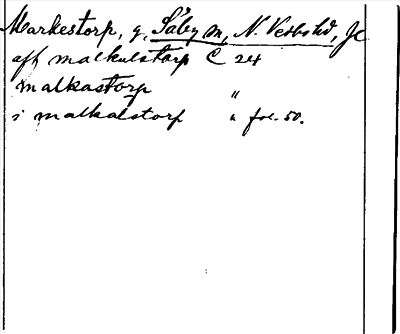 Markestorp, g, Säby sn, N. Vedbo hd, Jc
aff malkulstorp C 24
malkastorp "
i malkalstorp " fol. 50.